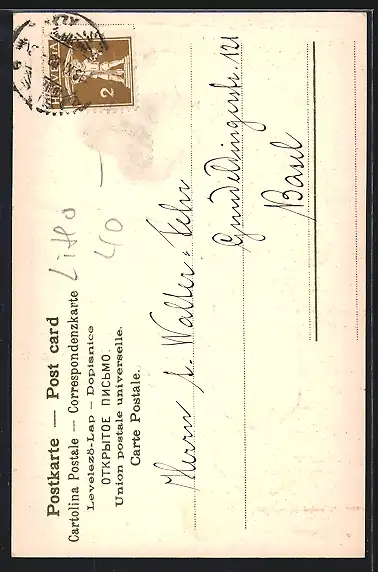 Postkarte — Post card
Cartolina Postale — Correspondenzkarte
Levelező-Lap — Dopisnice
ОТКРЫТОЕ ПИСЬМО.
Union postale universelle.
Carte Postale.
HELVETIA
2
Litho
40 —
Herrn A. Walter-Fehr
Gundeldingerstr 121
Basel